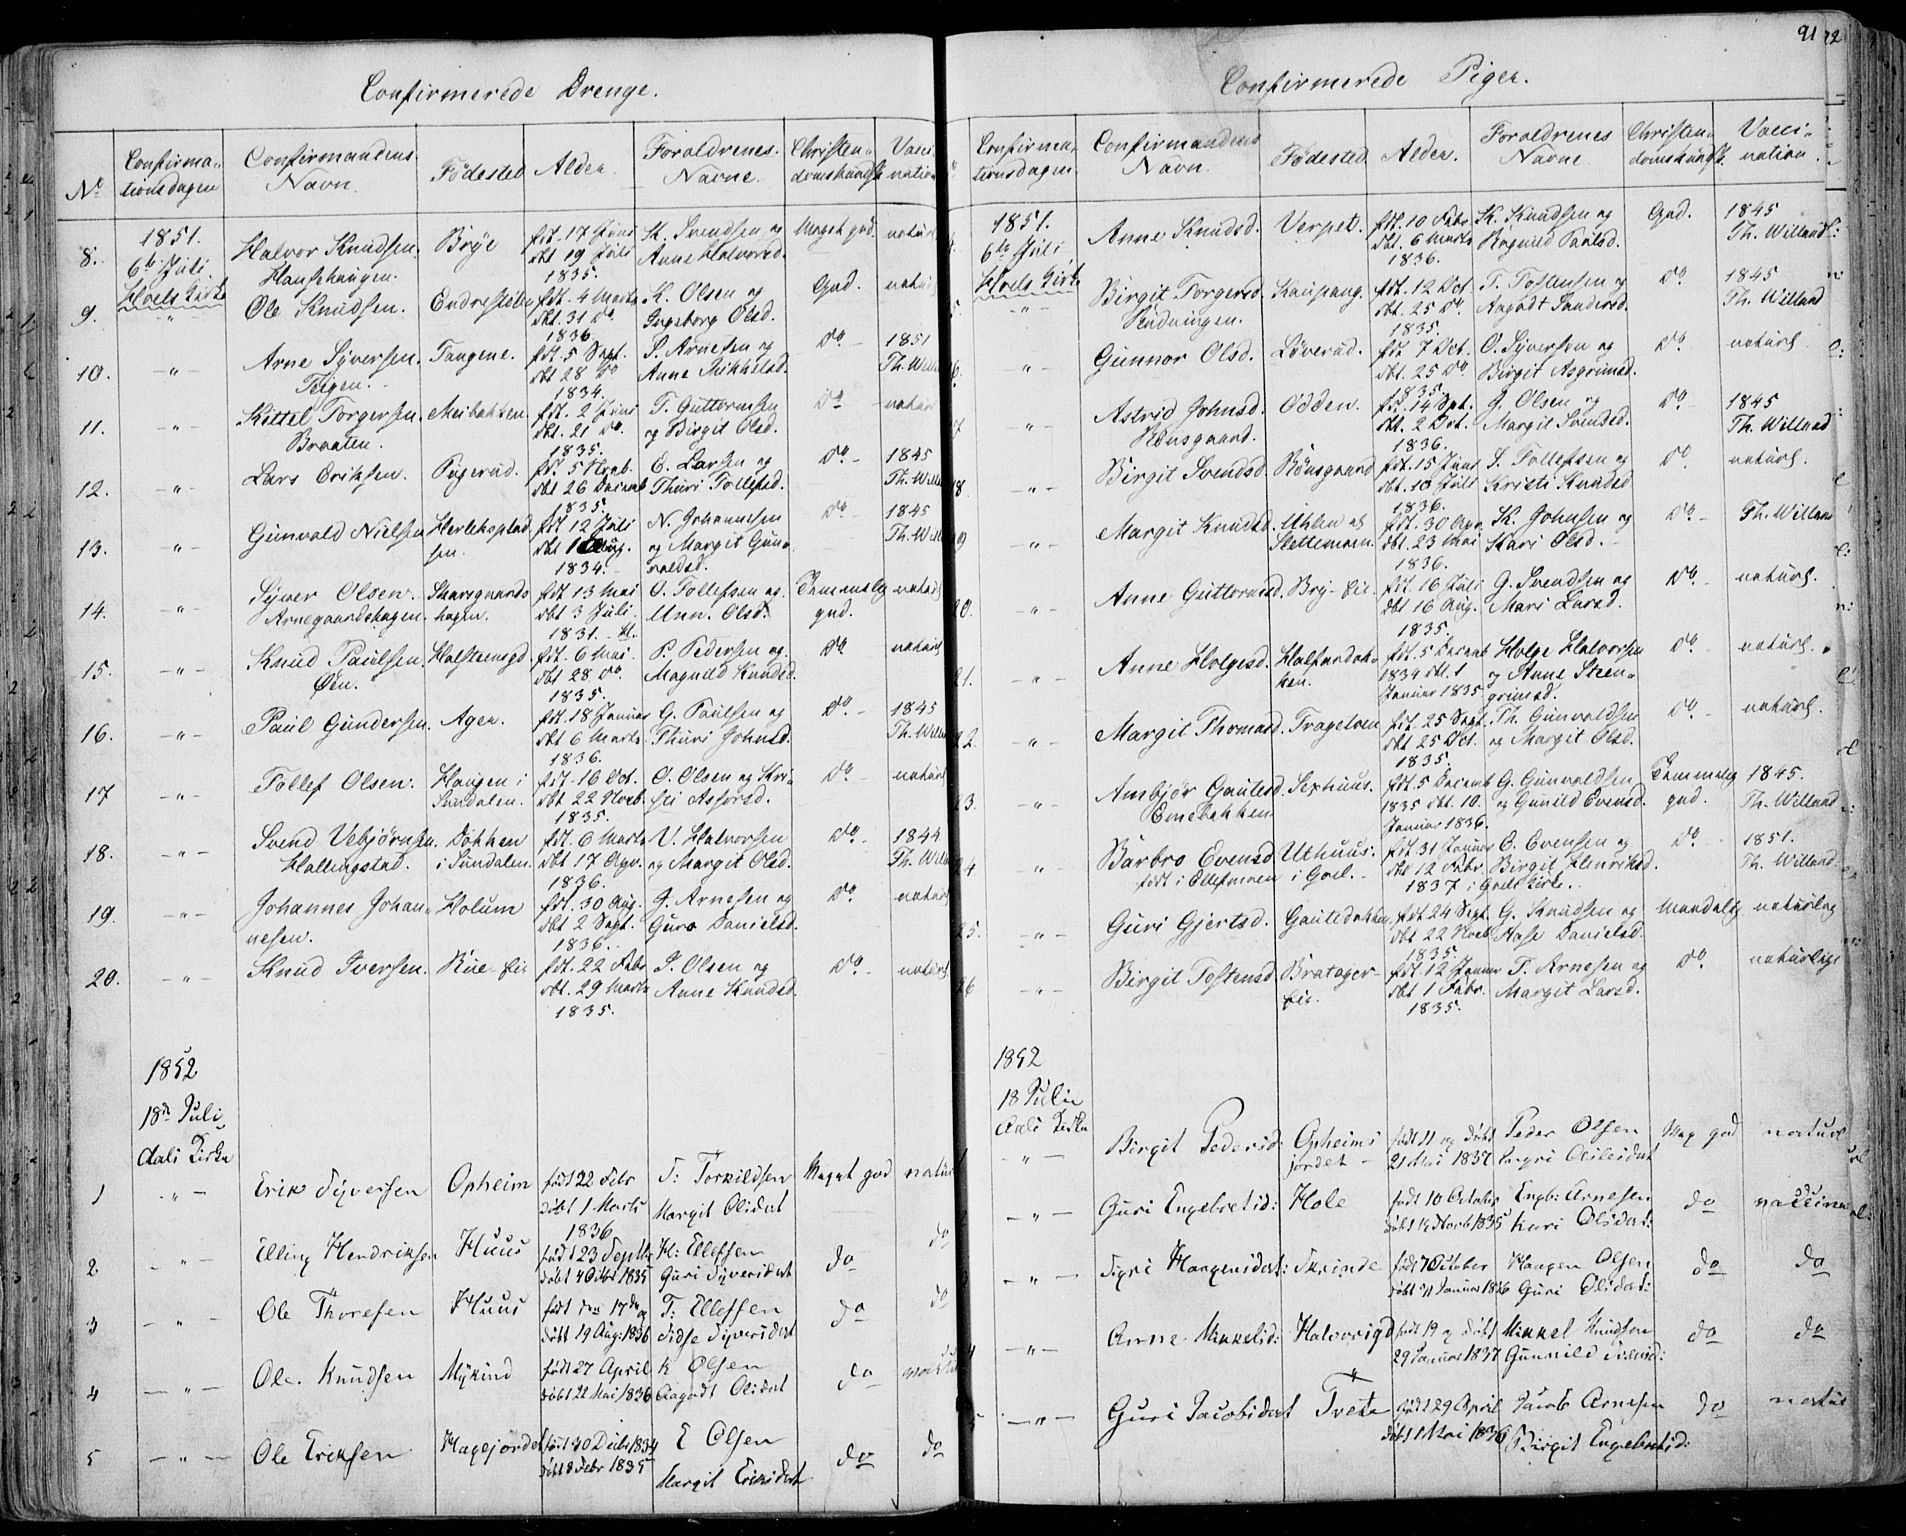 91
Confirmerede Drenge.
No
Confirma-
tionsdagen
Confirmandens
Navn.
Fødested
Alder.
Forældrenes
Navne.
Christen-
domskundsk.
Vacci-
nation
1851.
6te Juli
Hoels Kirke
8.
Halvor Knudsen.
Haugehaugen.
Brye
fdt. 17 Juni
dbt 19 Juli
1835.
K. Svendsen og
Anne Halvorsd.
Meget god.
naturl
9.
Ole Knudsen.
Endrestølen
fdt. 4 Marts
dbt. 31 do
1836
K. Olsen og
Ingeborg Olsd.
God.
naturl
10.
Arne Syversen.
Teigen.
Tangene.
fdt. 5 Sept.
dbt 28 do
1834.
S. Arnesen og
Anne Mikkelsd.
do
1851
Th. Will
11.
Kittel Torgersen.
Braaten.
Meibakken.
fdt. 2 Juni
dbt. 21 do.
1835.
T. Guttormsen
og Birgit Olsd.
do
natur
12.
Lars Eriksen.
Pugerud.
fdt. 5 Novb.
dbt 26 Decemb
1835.
E. Larsen og
Thuri Tollefsd.
do
1845
Th. Will
13.
Gunvald Nielsen
fdt 12 Juli
1834.
N. Johannesen
og Margit Gun-
valdsd.
do
1845
Th. Will
14.
Syver Olsen.
Arnegaardshagen.
Skarsgaards
hagen.
fdt 13 Mai
dbt 3 Juli.
1831.
O. Tollefsen og
Unn. Olsd.
Temmelig
god.
naturl
15.
Knud Paulsen.
Øen.
Halsteensgd.
fdt. 6 Mai.
dbt 28 do.
1835.
P. Pedersen og
Magnild Knudsd.
do
naturl
16.
Paul Gundersen.
Ager.
fdt. 18 Januar
dbt 6 Marts.
1836.
G. Paulsen og
Thuri Johnsd.
do
1845
Th. Will
17
Tollef Olsen.
Haugen i
Sundalen.
fdt. 16 Oct.
dbt 22 Novb.
1835.
O. Olsen og Kri-
sti Asforsd.
do
naturl
18.
Svend Vebjørnsen
Hallingstad.
Dokken
i Sundalen.
fdt. 6 Marts
dbt 17 Apr.
1836.
V. Halvorsen
og Margit Olsd.
do.
1844
Th. Will
19.
Johannes Johan-
nesen.
Holum
fdt. 30 Aug.
dbt 2 Sept.
1836.
J. Arnesen og
Guro Danielsd.
do.
naturl
20.
Knud Iversen.
Rue-Eie
fdt. 22 Febr
dbt. 29 Marts
1835.
I. Olsen og
Anne Knudsd.
do.
naturl
1852
18de Juli
Aals Kirke
1
Erik Syversen
Opheim
født 22 Febr
døbt 1 Marts
1836
S: Torkildsen
Margit Olsdat
Meget god
natur
2
Elling Hendriksen
Huus
født 23 Septbr
døbt 4 Octbr 1835
H: Ellefsen
Guri Syversdat
do
do
3
Ole Thoresen
Huus
født den 17de og
døbt 19 Aug: 1836
T: Ellefsen
Sidse Syversdat
do
do
4
Ole Knudsen
Mykind
født 27 April
døbt 22 Mai 1836
K Olsen
Aagodt Olsdat
do
5
Ole Eriksen
Hagejordet
født 30 Decbr 1834
døbt 8 Febr 1835
E Olsen
Margit Eriksdat
do
do
Confirmerede Piger.
Confirma-
tionsdagen
Confirmandens
Navn.
Fødested
Alder.
Forældrenes
Navne
Christen-
domskundsk.
Vacci-
nation.
1851.
6te Juli
Hoels Kirke
Anne Knudsd.
Verpet.
fdt. 10 Febr
dbt. 6 Marts
1836.
K. Knudsen og
Ragnild Paulsd.
God.
1845
Th. Willand
Birgit Torgersd.
Rudningen.
Kaupang.
fdt. 12 Oct
dbt. 25 do
1835.
T. Tostensen og
Aagodt Sandersd.
do
1845
Th. Willand
Gunnor Olsd.
Løverud.
fdt 7 Oct.
dbt. 25 do.
1835.
O. Syversen og
Birgit Asgrimsd.
do
naturl.
Astrid Johnsd.
Rønsgaard.
Odden.
fdt. 14 Sept.
dbt. 2 Oct.
1836.
J. Olsen og
Margit Svendsd.
do
1845
Th. Willand
18.
Birgit Svendsd.
Rønsgaard
fdt. 15 Juni
dbt. 10 Juli
1836.
S. Tollefsen og
Kristi Knudsd
do
naturl.
19
Margit Knudsd.
Uhlen af
Slettemoen.
fdt. 30 Apr.
dbt. 23 Mai
1836.
K. Johnsen og
Kari Olsd.
do
Th. Willand
20.
Anne Guttormsd.
Bry-Eie.
fdt. 16 Juli
dbt 16 Aug.
1835.
G. Svendsen og
Mari Larsd.
do
naturl.
21.
Anne Helgesd.
fdt. 5 Decemb
1834 dbt. 1
Januar 1835
Helge Halvorsen
og Anne Steen-
grimsd.
do
naturl.
22.
Margit Thomasd.
Trageteen
fdt. 25 Sept.
dbt 25 Oct.
1835.
Th. Gunvaldsen
og Margit Olsd.
do
naturl.
23.
Ambjør Gautesd.
Emebakken
Sexhuus.
fdt. 5 Decemb
1835 dbt. 10.
Januar 1836.
G. Gunvaldsen
og Gunild Evensd.
Temmelig
god.
1845.
Th. Willand
24
Barbro Evensd
født i Ellefmoen
Uthuus.
i Goel.
fdt. 31 Januar
dbt 12 Febr.
1837 i Goels Kirke.
E. Evensen og
Birgit Henriksd.
do.
1851.
Th. Willand.
25.
Guri Gjertsd.
fdt. 24 Sept.
dbt 22 Novb
1835.
G. Knudsen og
Aase Danielsd.
Maadelig
naturlig
26
Birgit Tostensd.
Bratager-
Eie.
fdt. 12 Januar
dbt 1 Febr.
1835.
T. Arnesen og
Margit Larsd.
do.
naturlige
1852
18 Julie
Aals Kirke
Birgit Pedersd:
Opheims
jordet
født 11 og døbt
21 Mai 1837
Peder Olsen
Meg god
naturl
Guri Engebretsd:
Hole
født 10 October
døbt 15 Novb 1835
Engb: Arnesen
Kari Olsdat:
do
Sigri Haagensdat:
Skrinde
født 7 October
døbt 31 Januar 1836
Haagen Olsen
Guri Olsdat:
do
do
4
Anne Mikkelsd:
Halvorsgd
født 19 og døbt
29 Januar 1837
Mikkel Knudsen
Gunnild
do
do
5
Guri Jacobsdat
Tveto
født 29 April
døbt 1 Mai 1836
Jacob Arnesen
Birgit Engebretsd:
do
natur